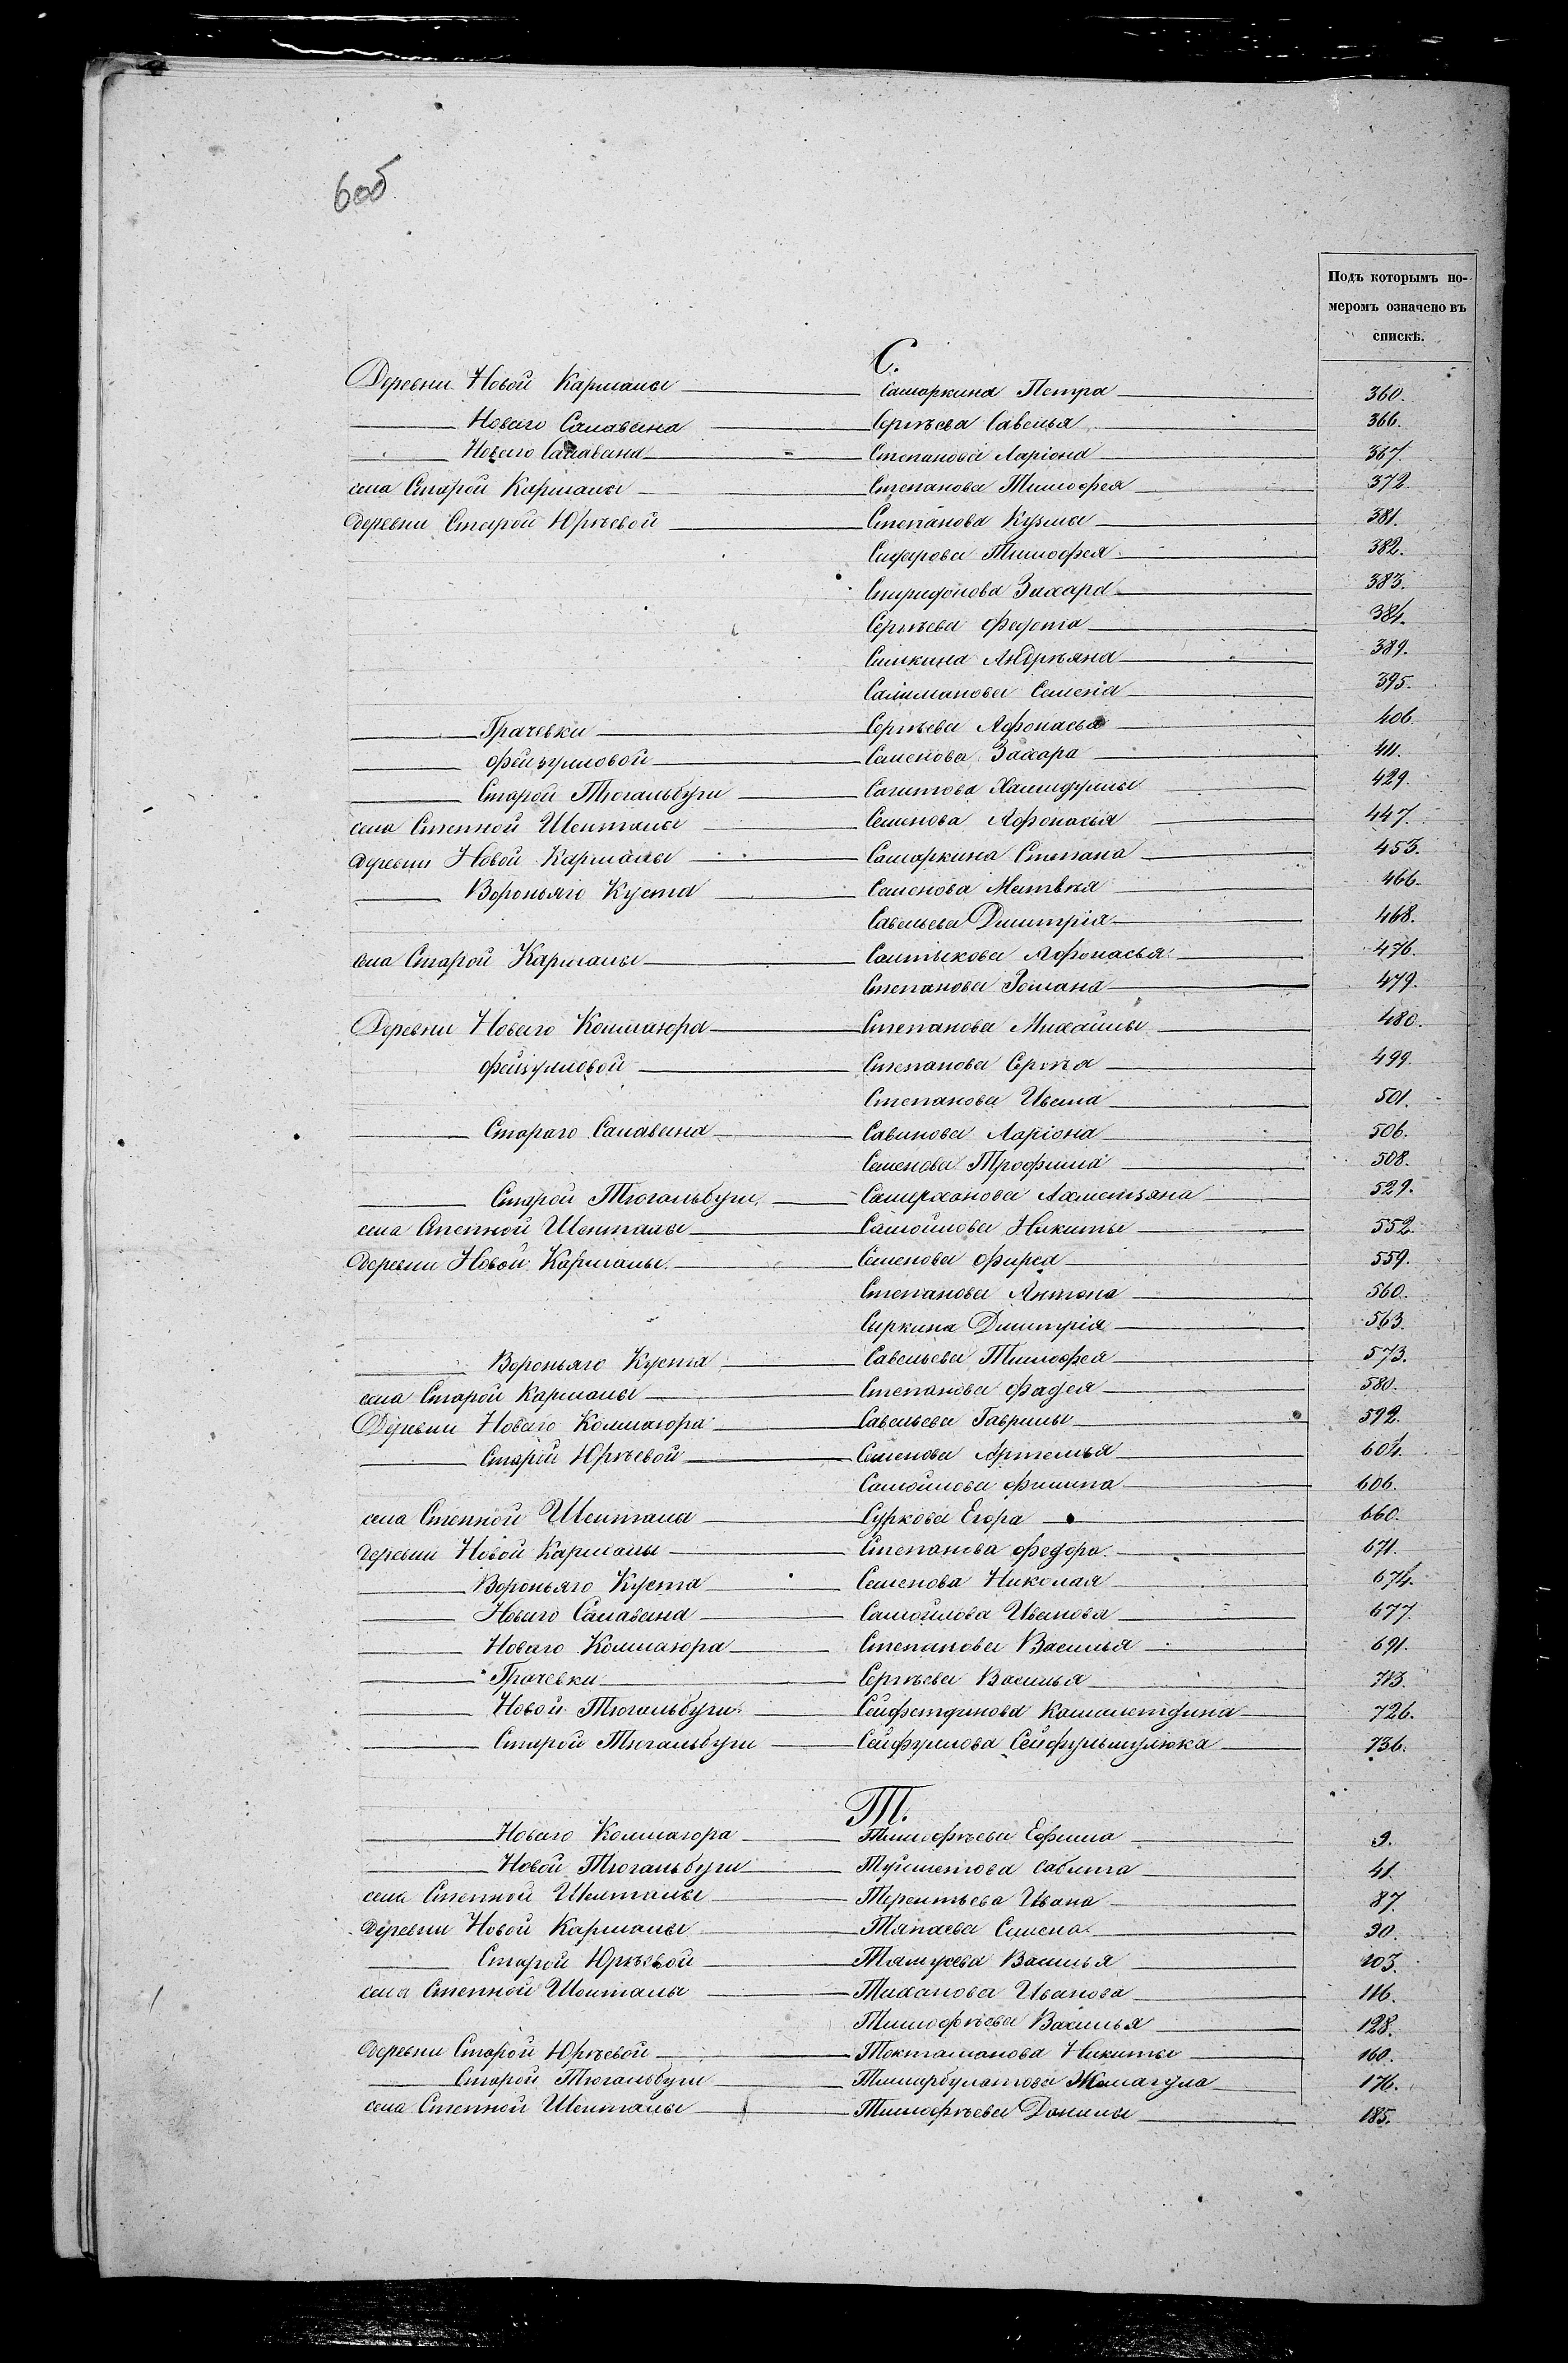 6 об
Подъ которымъ но-
меромъ означено въ
спискѣ.
С.
Деревни Новой Кармалы Самаркина Петра 360.
Новаго Салавана Сергѣева Савелья 366.
Новаго Салавана Степанова Ларіона 367.
села Старой Кармалы Степанова Тимофея 372.
деревни Старой Юрѣевой Степанова Кузма 381.
Сидарова Тимофея 382.
Спиридонова Захара 383.
Сергѣева Федота 384.
Симкина Андрѣяна 389.
Салиманова Семена 395.
Грачевки Сергѣева Афонасья 406.
Фейзулловой Семенова Захара 411.
Старой Тюгальбуги Сагитова Хамидуллы 429.
села Степной Шенталы Семенова Афонасья 447.
деревни Новой Кармалы Самаркина Степана 453.
Вороньяго Куста Семенова Матвѣя 466.
Савельева Дмитрія 468.
села Старой Кармалы Салтыкова Афонасья 476.
Степанова Романа 479.
Деревни Новаго Колмаюра Степанова Михайлы 480.
Фейзулловой Степанова Сергѣя 499.
Степанова Ивана 501.
Стараго Салавана Савинова Ларіона 506.
Семенова Трофима 508.
Старой Тюгальбуги Самирханова Ахметзяна 529.
села Степной Шенталы Самойлова Никиты 552.
Деревни Новой Кармалы Семенова Фирса 559.
Степанова Антона 560.
Сыркина Дмитрія 563.
Вороньяго Куста Савельева Тимофея 573.
села Старой Кармалы Степанова Фадея 580.
Деревни Новаго Колмаюра Савельева Гаврилы 592.
Старой Юрѣевой Семенова Артемья 604.
Самойлова Филипа 606.
села Степной Шенталы Суркова Егора 660.
деревни Новой Кармалы Степанова Федора 671.
Вороньяго Куста Семенова Николая 674.
Новаго Салавана Самойлова Иванова 677.
Новаго Колмаюра Степанова Василья 691.
Грачевки Сергѣева Василья 713.
Новой Тюгальбуги Сейфетдинова Камалетдина 726.
Старой Тюгальбуги Сейфуллова Сейфульмулюка 736.
Т.
Новаго Колмаюра Тимофѣева Ефима 9.
Новой Тюгальбуги Туйметова Сабита 41.
села Степной Шенталы Терентьева Ивана 87.
деревни Новой Кармалы Тяпаева Семена 90.
Старой Юрѣевой Василья 103.
села Степной Шенталы Тиханова Иванова 116.
Тимофѣева Василья 128.
деревни Старой Юрѣевой Токтаманова Никиты 160.
Старой Тюгальбуги Тимарбулатова 176.
села Степной Шенталы Тимофѣева Данилы 185.